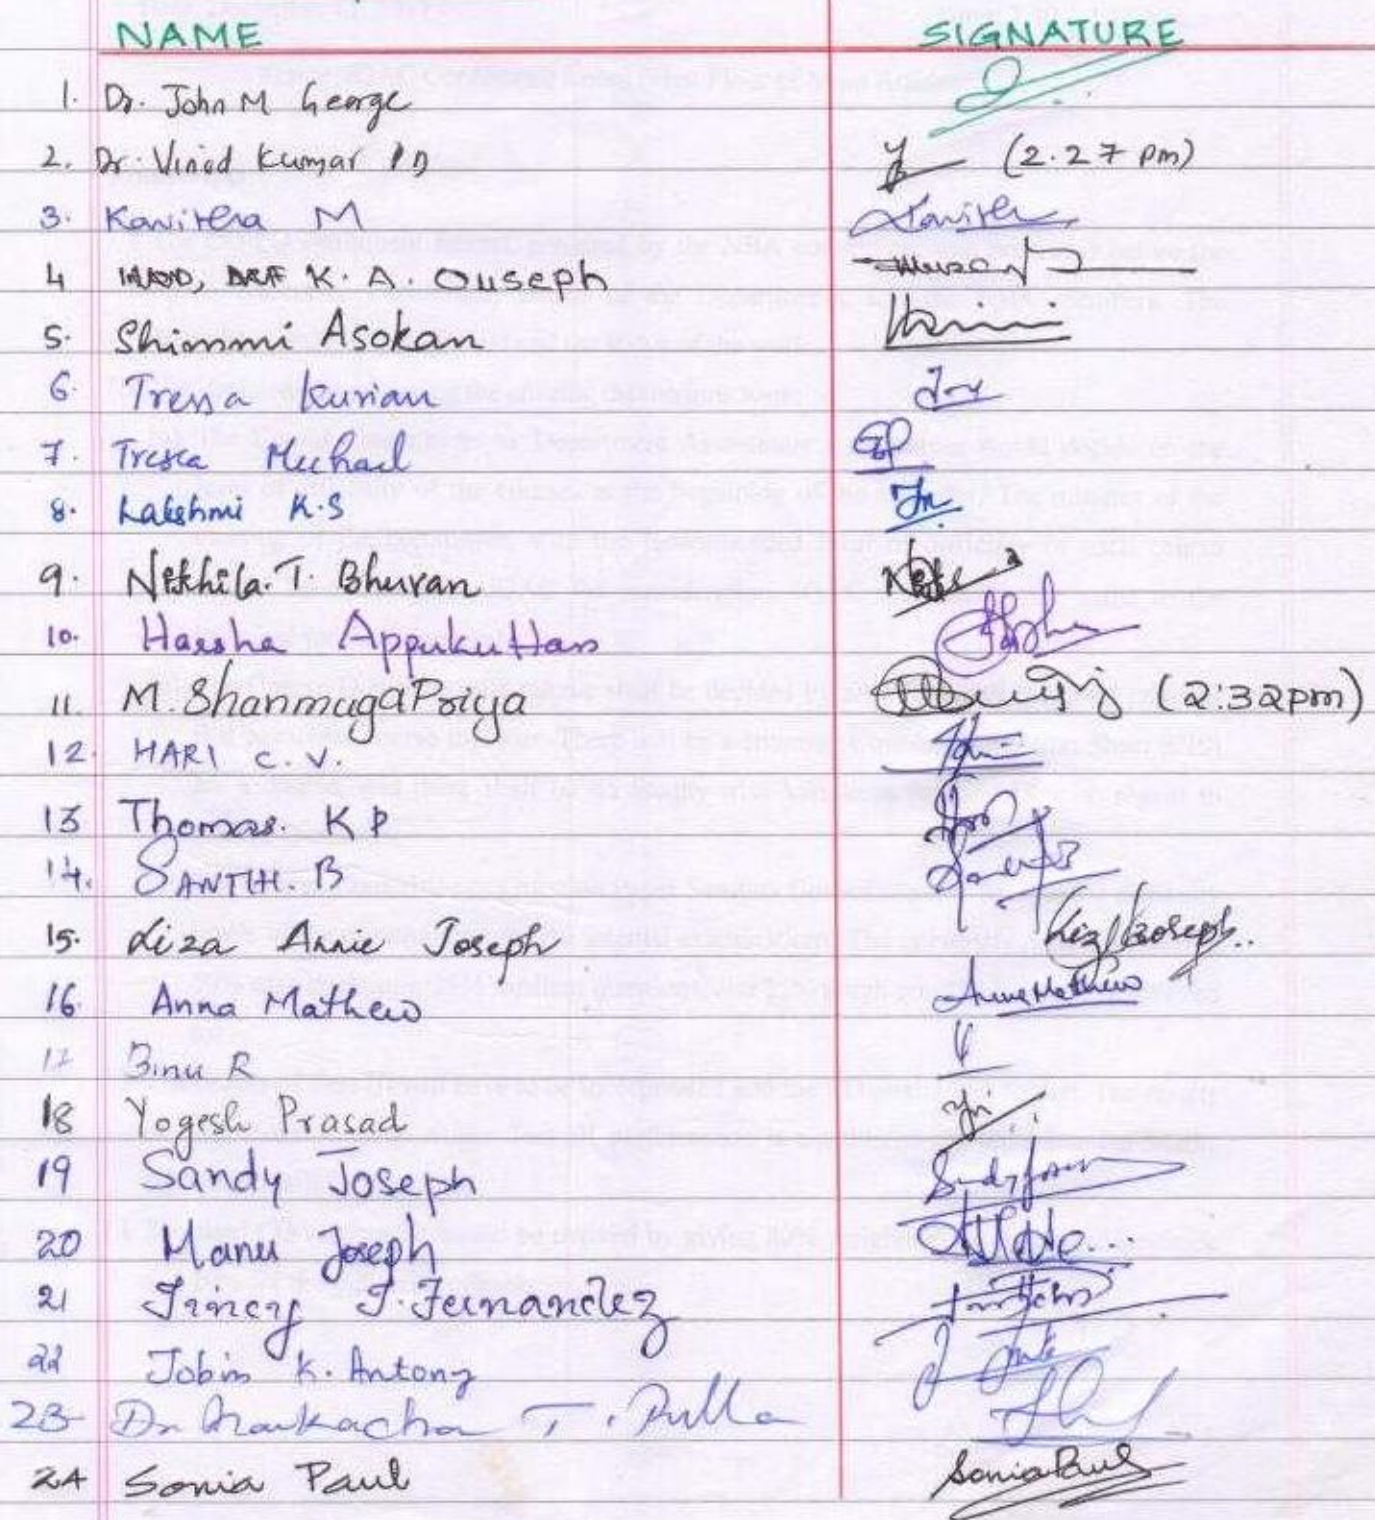 NAME SIGNATURE
1. Dr. John M George
2. Dr. Vinod Kumar P B (2.27 pm)
3. Kavitha M
4 K. A. Ouseph
5. Shimmi Asokan
6. Tressa Kurian
7. Tressa Michael
8. Lakshmi K.S
9. Nikhila. T. Bhuvan
10. Harsha Appukuttan
11. M. ShanmugaPriya (2:32pm)
12. HARI C. V.
13 Thomas. K P
14. SANTHI. B
15. Liza Annie Joseph
16. Anna Mathew Anna Mathew
17 Binu R
18 Yogesh Prasad
19 Sandy Joseph
20 Manu Joseph
21 Trincy J. Fernandez
22 Jobin K. Antony
23 Dr T.
24 Sonia Paul Sonia Paul